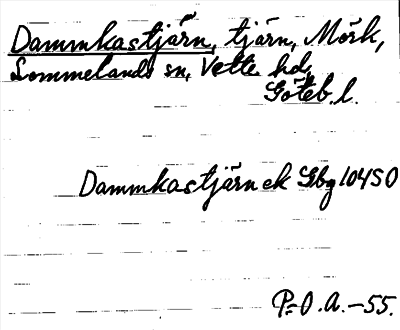 Dammkastjärn, tjärn, Mörk,
Lommelands sn, Vette hd,
Göteb. l.
Dammkastjärn ek Gbg 104SO
P.-O. A. -55.